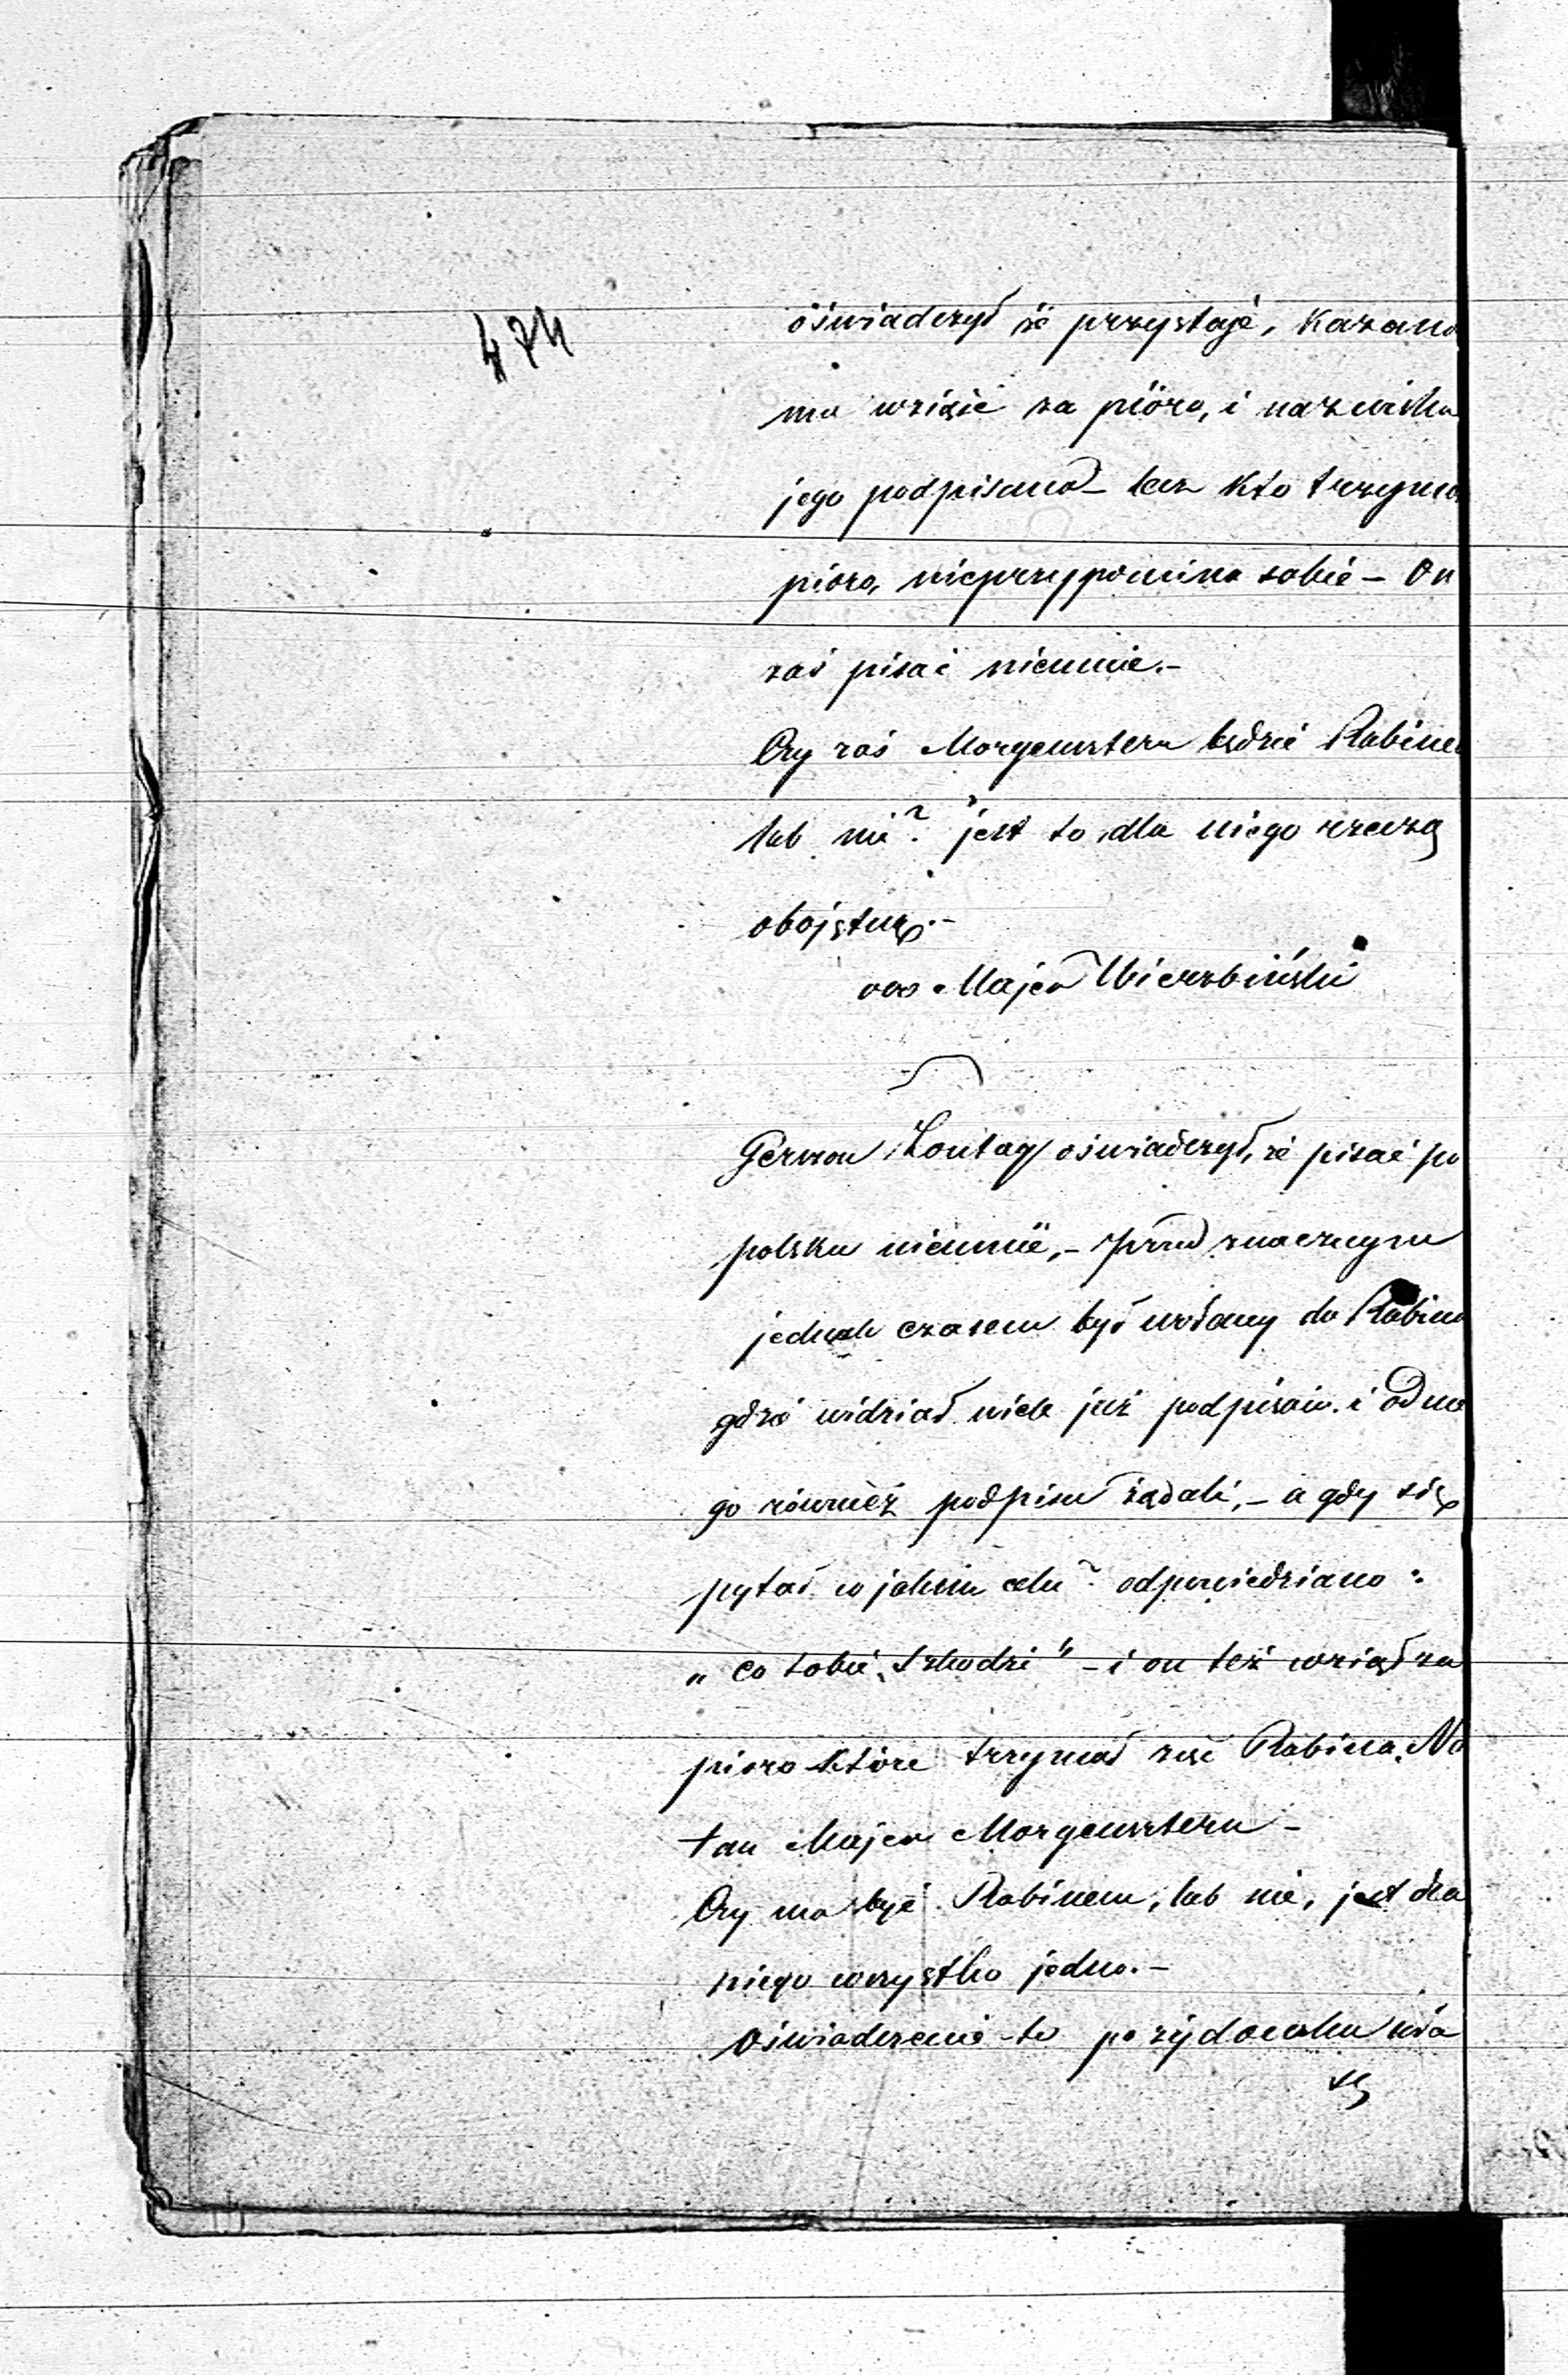 474
oświadczył że przystaje, kazano
mu wziąść za pióro, i nazwisko
jego podpisano – lecz kto trzymał
pióro, nieprzypomina sobie – On
zaś pisać nieumie. –
Czy zaś Morgensztern będzie Rabinem
lub nie? jest to dla niego rzeczą
obojętną. –
ooo Majer Wierzbiński
Gerszon Zontag oświadczył, że pisać po
polsku nieumie, – przed znacznym
jednak czasem był wołany do Rabina
gdzie widział wiele już podpisów i od nie
go również podpisu żądali, – a gdy się
pytał w jakim celu? odpowiedziano:
„co tobie szkodzi" – i on też wziął za
pioro które trzymał zięć Rabina, Na
tan Majer Morgensztern –
Czy ma być Rabinem, lub nie, jest dla
niego wszystko jedno. –
Oświadczenie to po żydowsku wła